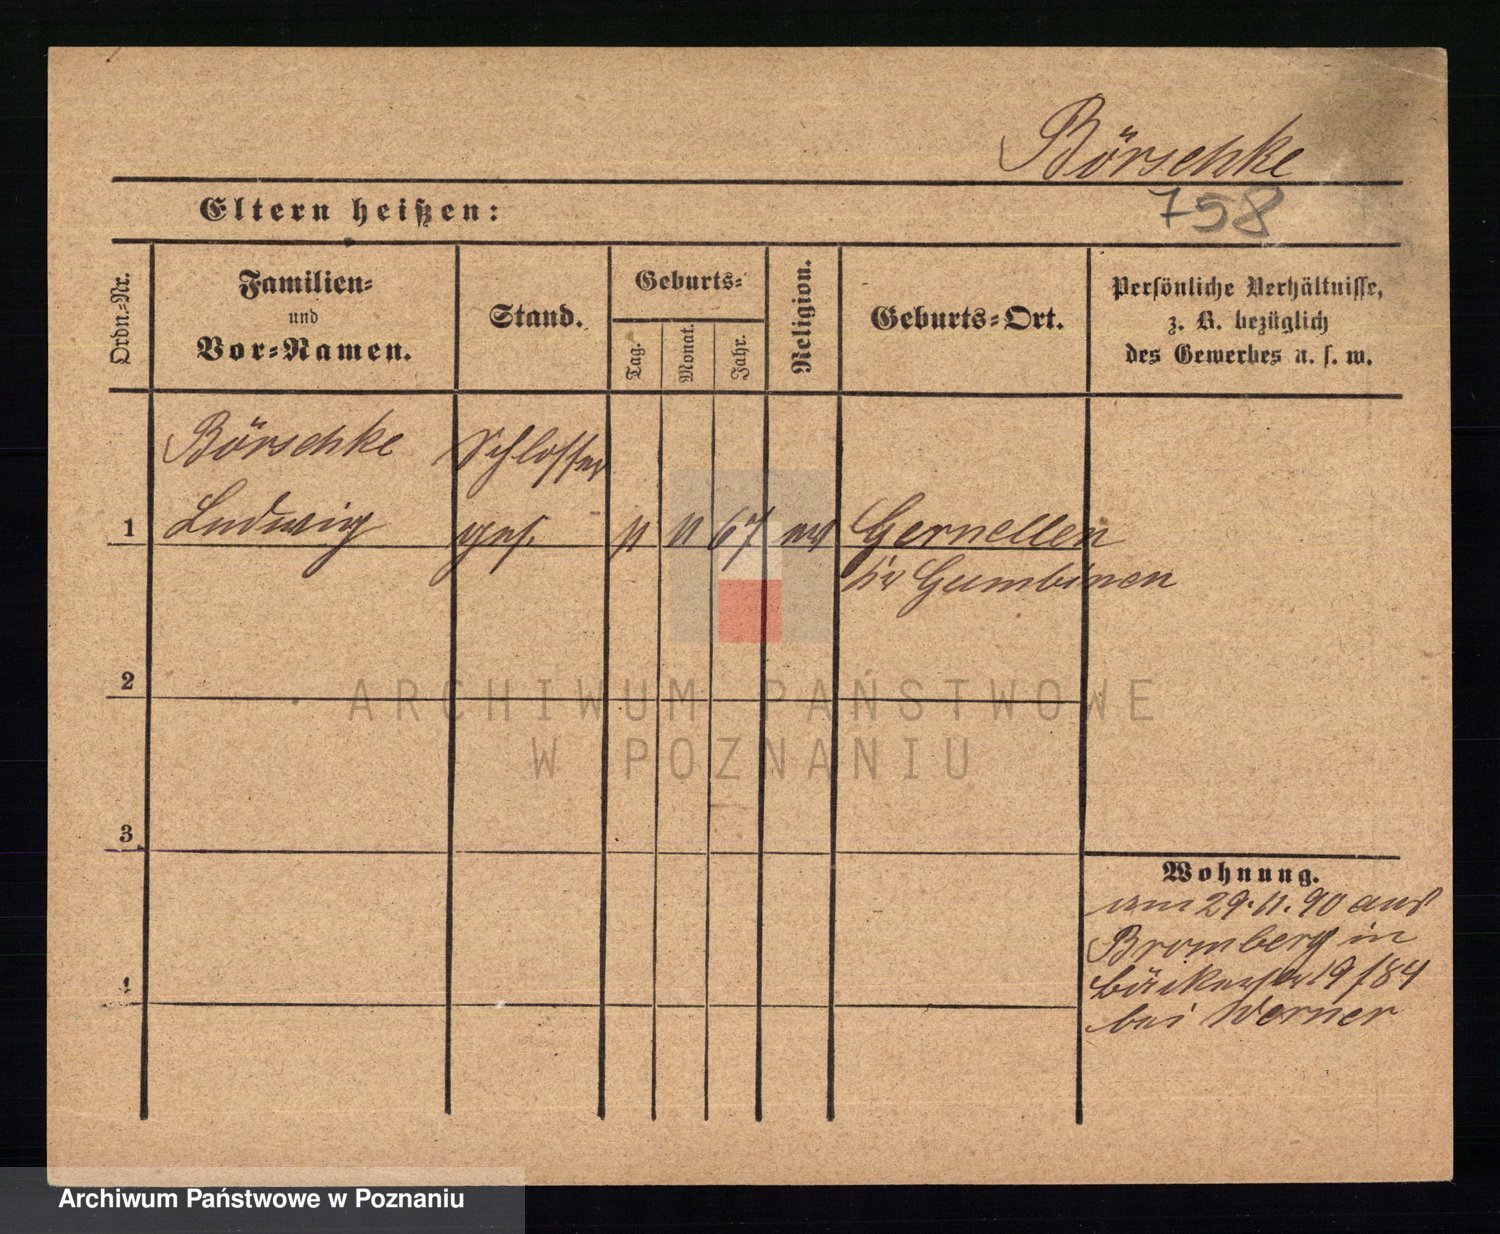 Börschke
758
Eltern heißen:
Ordn.-Nr.
Familien-
und
Vor-Namen.
Stand.
Geburts-
Tag.
Monat.
Jahr.
Religion.
Geburts-Ort.
Persönliche Verhältnisse,
z. B. bezüglich
des Gewerbes u. s. w.
Börschke Schlosser
1 Ludwig ges. 11 11 67 ev Gernellen
Gumbinen
2
ARCHIWUM PAŃSTWOWE
W POZNANIU
3
Wohnung.
am 29.11.90 aus
Bromberg in
Bäckerstr 19/84
bei Werner
4
Archiwum Państwowe w Poznaniu